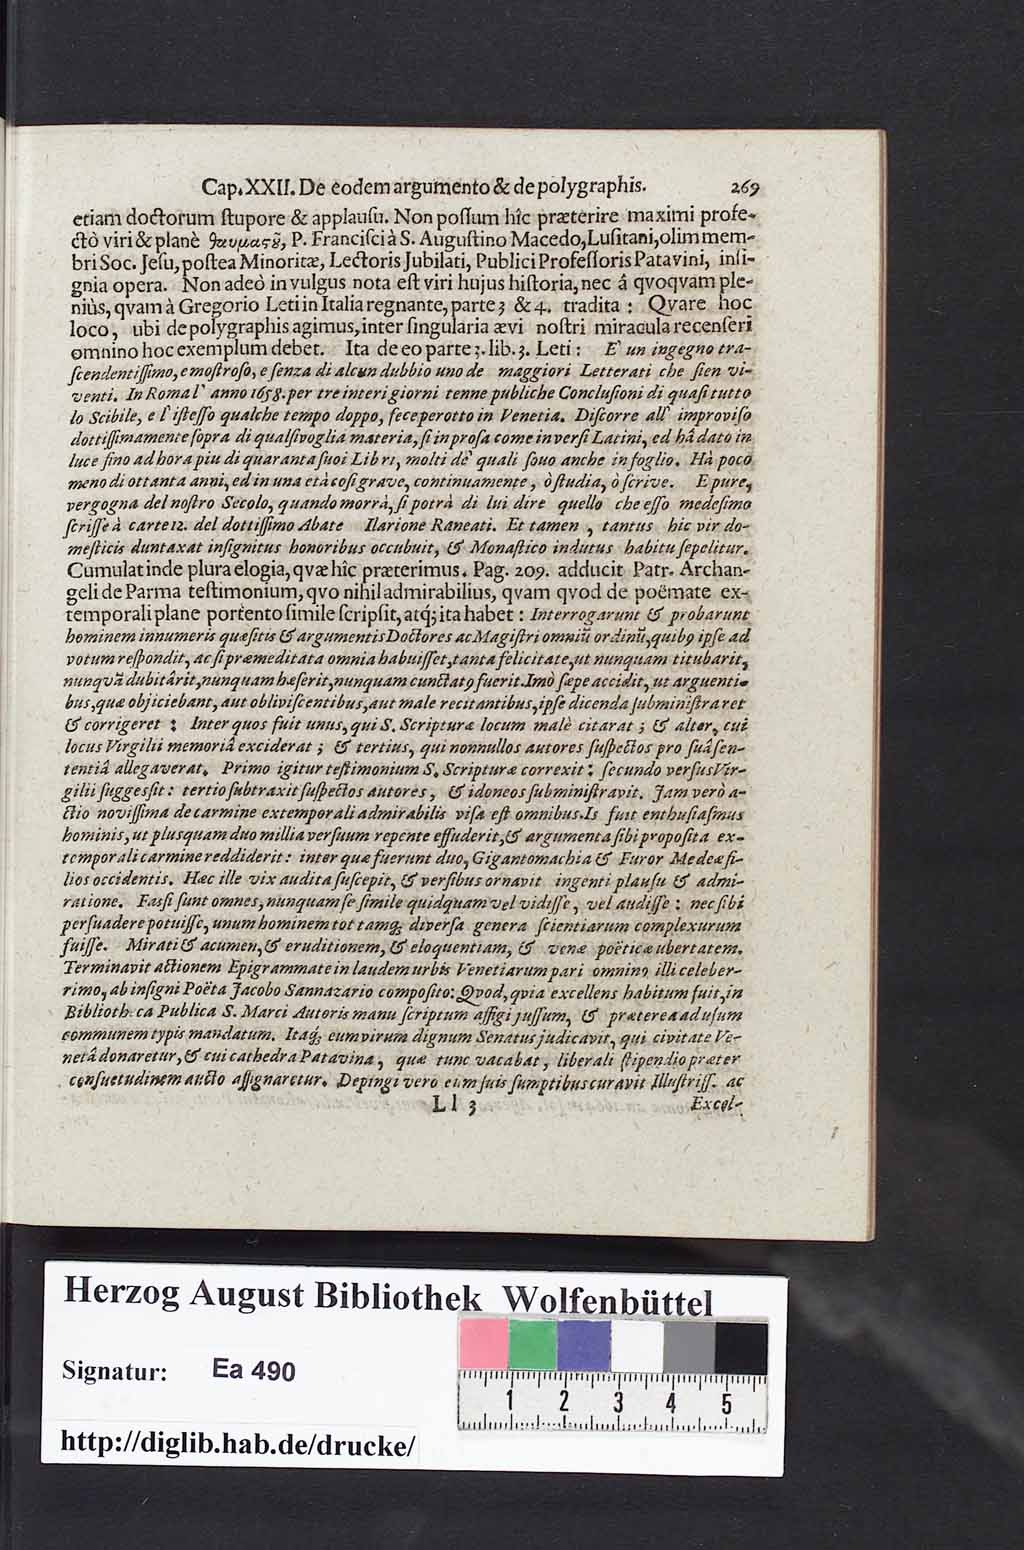 Cap. XXII. De eodem argumento & de polygraphis. 269
etiam doctorum ſtupore & applauſu. Non poſſum hîc præterire maximi profe-
ctò viri & planè θαυμαςȣ͂, P. Franciſci à S. Auguſtino Macedo, Luſitani, olim mem-
bri Soc. Jeſu, poſtea Minoritæ, Lectoris Jubilati, Publici Profeſſoris Patavini, inſi-
gnia opera. Non adeò in vulgus nota eſt viri hujus hiſtoria, nec á qvoqvam ple-
niùs, qvam à Gregorio Leti in Italia regnante, parte 3 & 4. tradita : Qvare hoc
loco, ubi de polygraphis agimus, inter ſingularia ævi noſtri miracula recenſeri
omnino hoc exemplum debet. Ita de eo parte 3. lib. 3. Leti : E' un ingegno tra-
ſcendentiſſimo, e moſtroſo, e ſenza di alcun dubbio uno de maggiori Letterati che ſien vi-
venti. In Roma l' anno 1658. per tre interi giorni tenne publiche Concluſioni di quaſi tutto
lo Scibile, e l' iſteſſo qualche tempo doppo, fece per otto in Venetia. Diſcorre all' improviſo
dottiſſimamente ſopra di qualſivoglia materia, ſi in proſa come in verſi Latini, ed hâ dato in
luce fino ad hora piu di quaranta ſuoi Libri, molti de' quali ſouo anche in foglio. Hà poco
meno di ottanta anni, ed in una età coſi grave, continuamente, ò ſtudia, ò ſcrive. E pure,
vergogna del noſtro Secolo, quando morrà, ſi potrà di lui dire quello che eſſo medeſimo
ſcriſſe à carte 12. del dottiſſimo Abate Ilarione Raneati. Et tamen , tantus hic vir do-
meſticis duntaxat inſignitus honoribus occubuit, & Monaſtico indutus habitu ſepelitur.
Cumulat inde plura elogia, qvæ hîc præterimus. Pag. 209. adducit Patr. Archan-
geli de Parma teſtimonium, qvo nihil admirabilius, qvam qvod de poëmate ex-
temporali plane portento ſimile ſcripſit, atq; ita habet : Interrogarunt & probarunt
hominem innumeris quæſitis & argumentis Doctores ac Magiſtri omniũ ordinũ, quibꝰ ipſe ad
votum reſpondit, ac ſi præmeditata omnia habuiſſet, tanta felicitate, ut nunquam titubarit,
nunquã dubitârit, nunquam hæſerit, nunquam cunctatꝰ fuerit. Imò ſæpe accidit, ut arguenti-
bus, quæ objiciebant, aut obliviſcentibus, aut male recitantibus, ipſe dicenda ſubminiſtraret
& corrigeret : Inter quos fuit unus, qui S. Scripturæ locum malè citarat ; & alter, cui
locus Virgilii memoriâ exciderat ; & tertius, qui nonnullos autores ſuſpectos pro ſuâ ſen-
tentiâ allegaverat. Primo igitur teſtimonium S. Scripturæ correxit : ſecundo verſus Vir-
gilii ſuggeſſit : tertio ſubtraxit ſuſpectos autores, & idoneos ſubminiſtravit. Jam verò a-
ctio noviſſima de carmine extemporali admirabilis viſa eſt omnibus. Is fuit enthuſiaſmus
hominis, ut plusquam duo millia verſuum repente effuderit, & argumenta ſibi propoſita ex-
temporali carmine reddiderit : inter quæ fuerunt duo, Gigantomachia & Furor Medeæ fi-
lios occidentis. Hæc ille vix audita ſuſcepit, & verſibus ornavit ingenti plauſu & admi-
ratione. Faſſi ſunt omnes, nunquam ſe ſimile quidquam vel vidiſſe, vel audiſſe : nec ſibi
perſuadere potuiſſe, unum hominem tot tamq; diverſa genera ſcientiarum complexurum
fuiſſe. Mirati & acumen, & eruditionem, & eloquentiam, & venæ poëticæ ubertatem.
Terminavit actionem Epigrammate in laudem urbis Venetiarum pari omninꝰ illi celeber-
rimo, ab inſigni Poëta Jacobo Sannazario compoſito : Qvod, qvia excellens habitum fuit, in
Biblioth ca Publica S. Marci Autoris manu ſcriptum affigi juſſum, & præterea ad uſum
communem typis mandatum. Itaq; eum virum dignum Senatus judicavit, qui civitate Ve-
netâ donaretur, & cui cathedra Patavina, quæ tunc vacabat, liberali ſtipendio præter
conſuetudinem aucto aſſignaretur. Depingi vero eum ſuis ſumptibus curavit Illuſtriſſ. ac
Ll 3 Excel-
Herzog August Bibliothek Wolfenbüttel
Signatur: Ea 490
1 2 3 4 5
http://diglib.hab.de/drucke/